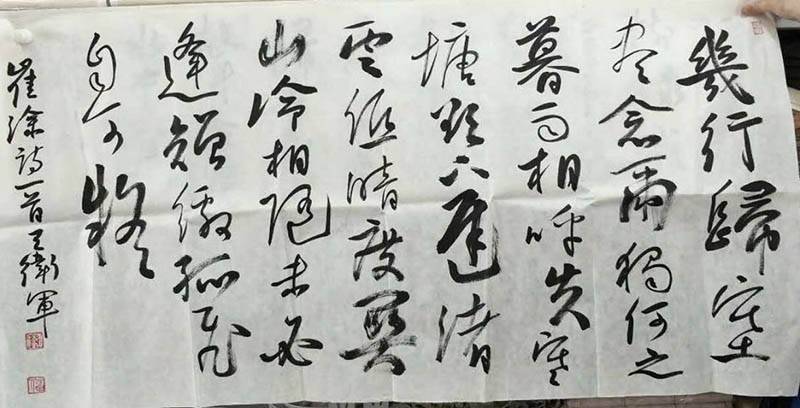 幾行歸塞
尽念爾獨何之
暮雨相呼失寒
塘欲下遲渚
雲低暗度關
山冷相随未必
逢矰繳孤飛
自可疑
崔涂詩一首王衛軍